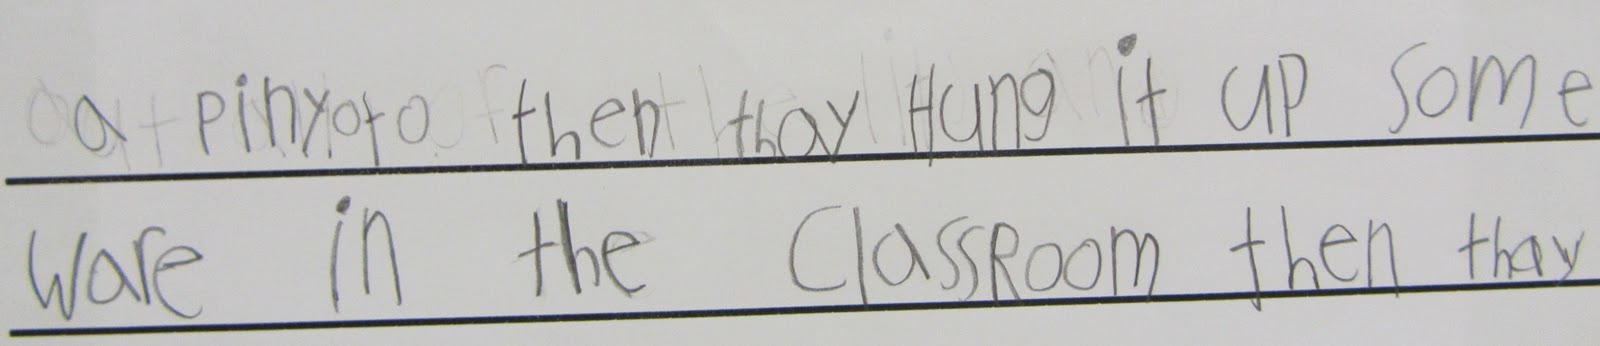 a pinyoto then thay Hung it up some
ware in the ClassRoom then thay